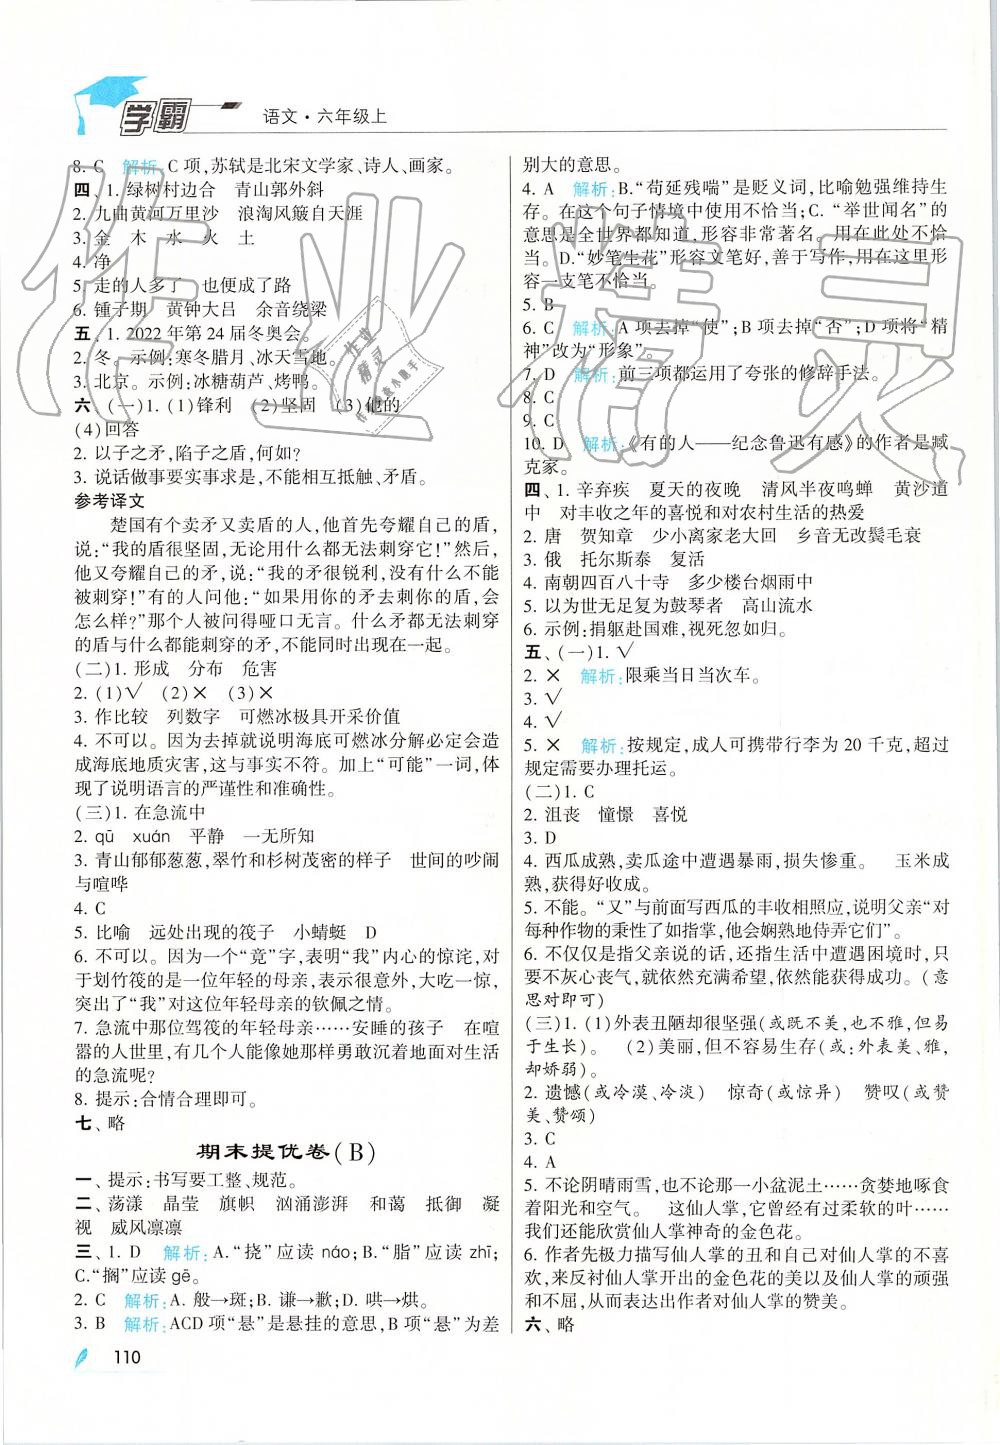 学霸 语文·六年级上
8. C 解析 C项,苏轼是北宋文学家、诗人、画家。
四、1. 绿树村边合 青山郭外斜
2. 九曲黄河万里沙 浪淘风簸自天涯
3. 金 木 水 火 土
4. 净
5. 走的人多了 也便成了路
6. 锺子期 黄钟大吕 余音绕梁
五、1. 2022年第24届冬奥会。
2. 冬。示例:寒冬腊月、冰天雪地。
3. 北京。示例:冰糖葫芦、烤鸭。
六、(一)1. (1)锋利 (2)坚固 (3)他的
(4)回答
2. 以子之矛,陷子之盾,何如?
3. 说话做事要实事求是,不能相互抵触、矛盾。
参考译文
楚国有个卖矛又卖盾的人,他首先夸耀自己的盾,
说:“我的盾很坚固,无论用什么都无法刺穿它!”然后,
他又夸耀自己的矛,说:“我的矛很锐利,没有什么不能
被刺穿!”有的人问他:“如果用你的矛去刺你的盾,会
怎么样?”那个人被问得哑口无言。什么矛都无法刺穿
的盾与什么都能刺穿的矛,不能同时出现在一起。
(二)1. 形成 分布 危害
2. (1)√ (2)× (3)×
3. 作比较 列数字 可燃冰极具开采价值
4. 不可以。因为去掉就说明海底可燃冰分解必定会造
成海底地质灾害,这与事实不符。加上“可能”一词,体
现了说明语言的严谨性和准确性。
(三)1. 在急流中
2. qū xuán 平静 一无所知
3. 青山郁郁葱葱,翠竹和杉树茂密的样子 世间的吵闹
与喧哗
4. C
5. 比喻 远处出现的筏子 小蜻蜓 D
6. 不可以。因为一个“竟”字,表明“我”内心的惊诧,对
于划竹筏的是一位年轻的母亲,表示很意外甚至一惊,
突出了“我”对这位年轻母亲的钦佩之情。
7. 急流中那位驾筏的年轻母亲……安睡的孩子 在喧
嚣的人世里,有几个人能像她那样勇敢沉着地面对生活
的急流呢?
8. 提示:合情合理即可。
七、略
期末提优卷(B)
一、提示:书写要工整、规范。
二、荡漾 晶莹 旗帜 汹涌澎湃 和蔼 抵御 凝
视 威风凛凛
三、1. D 解析:A.“挠”应读 náo;B.“脂”应读 zhī;
C.“搁”应读 gē。
2. C 解析:A. 般→斑;B. 谦→歉;D. 哄→烘。
3. B 解析:ACD项“悬”是悬挂的意思,B项“悬”为差
110
别大的意思。
4. A 解析:B.“苟延残喘”是贬义词,比喻勉强维持生
存。在这个句子情境中使用不恰当;C.“举世闻名”的
意思是全世界都知道,形容非常著名。用在此处不恰
当。D.“妙笔生花”形容文笔好,善于写作,用在这里形
容一支笔不恰当。
5. B
6. C 解析:A项去掉“使”;B项去掉“否”;D项将“精
神”改为“形象”。
7. D 解析:前三项都运用了夸张的修辞手法。
8. C
9. C
10. D 解析:《有的人——纪念鲁迅有感》的作者是臧
克家。
四、1. 辛弃疾 夏天的夜晚 清风半夜鸣蝉 黄沙道
中 对丰收之年的喜悦和对农村生活的热爱
2. 唐 贺知章 少小离家老大回 乡音无改鬓毛衰
3. 俄 托尔斯泰 复活
4. 南朝四百八十寺 多少楼台烟雨中
5. 以为世无足复为鼓琴者 高山流水
6. 示例:捐躯赴国难,视死忽如归。
五、(一)1. √
2. × 解析:限乘当日当次车。
3. √
4. √
5. × 解析:按规定,成人可携带行李为20千克,超过
规定需要办理托运。
(二)1. C
2. 沮丧 憧憬 喜悦
3. D
4. 西瓜成熟,卖瓜途中遭遇暴雨,损失惨重。 玉米成
熟,获得好收成。
5. 不能。“又”与前面写西瓜的丰收相照应,说明父亲“对
每种作物的秉性了如指掌,他会娴熟地侍弄它们”。
6. 不仅仅是指父亲说的话,还指生活中遭遇困境时,只
要不灰心丧气,就依然充满希望,依然能获得成功。(意
思对即可)
(三)1. (1)外表丑陋却很坚强(或既不美,也不雅,但易
于生长)。 (2)美丽,但不容易生存(或:外表美、雅,
却娇弱)。
2. 遗憾(或冷漠、冷淡) 惊奇(或惊异) 赞叹(或赞
美、赞颂)
3. C
4. A
5. 不论阴晴雨雪,也不论那一小盆泥土……贪婪地啄食
着阳光和空气。 这仙人掌,它曾经有过柔软的叶……
我们还能欣赏仙人掌神奇的金色花。
6. 作者先极力描写仙人掌的丑和自己对仙人掌的不喜
欢,来反衬仙人掌开出的金色花的美以及仙人掌的顽强
和不屈,从而表达出作者对仙人掌的赞美。
六、略
作业精灵